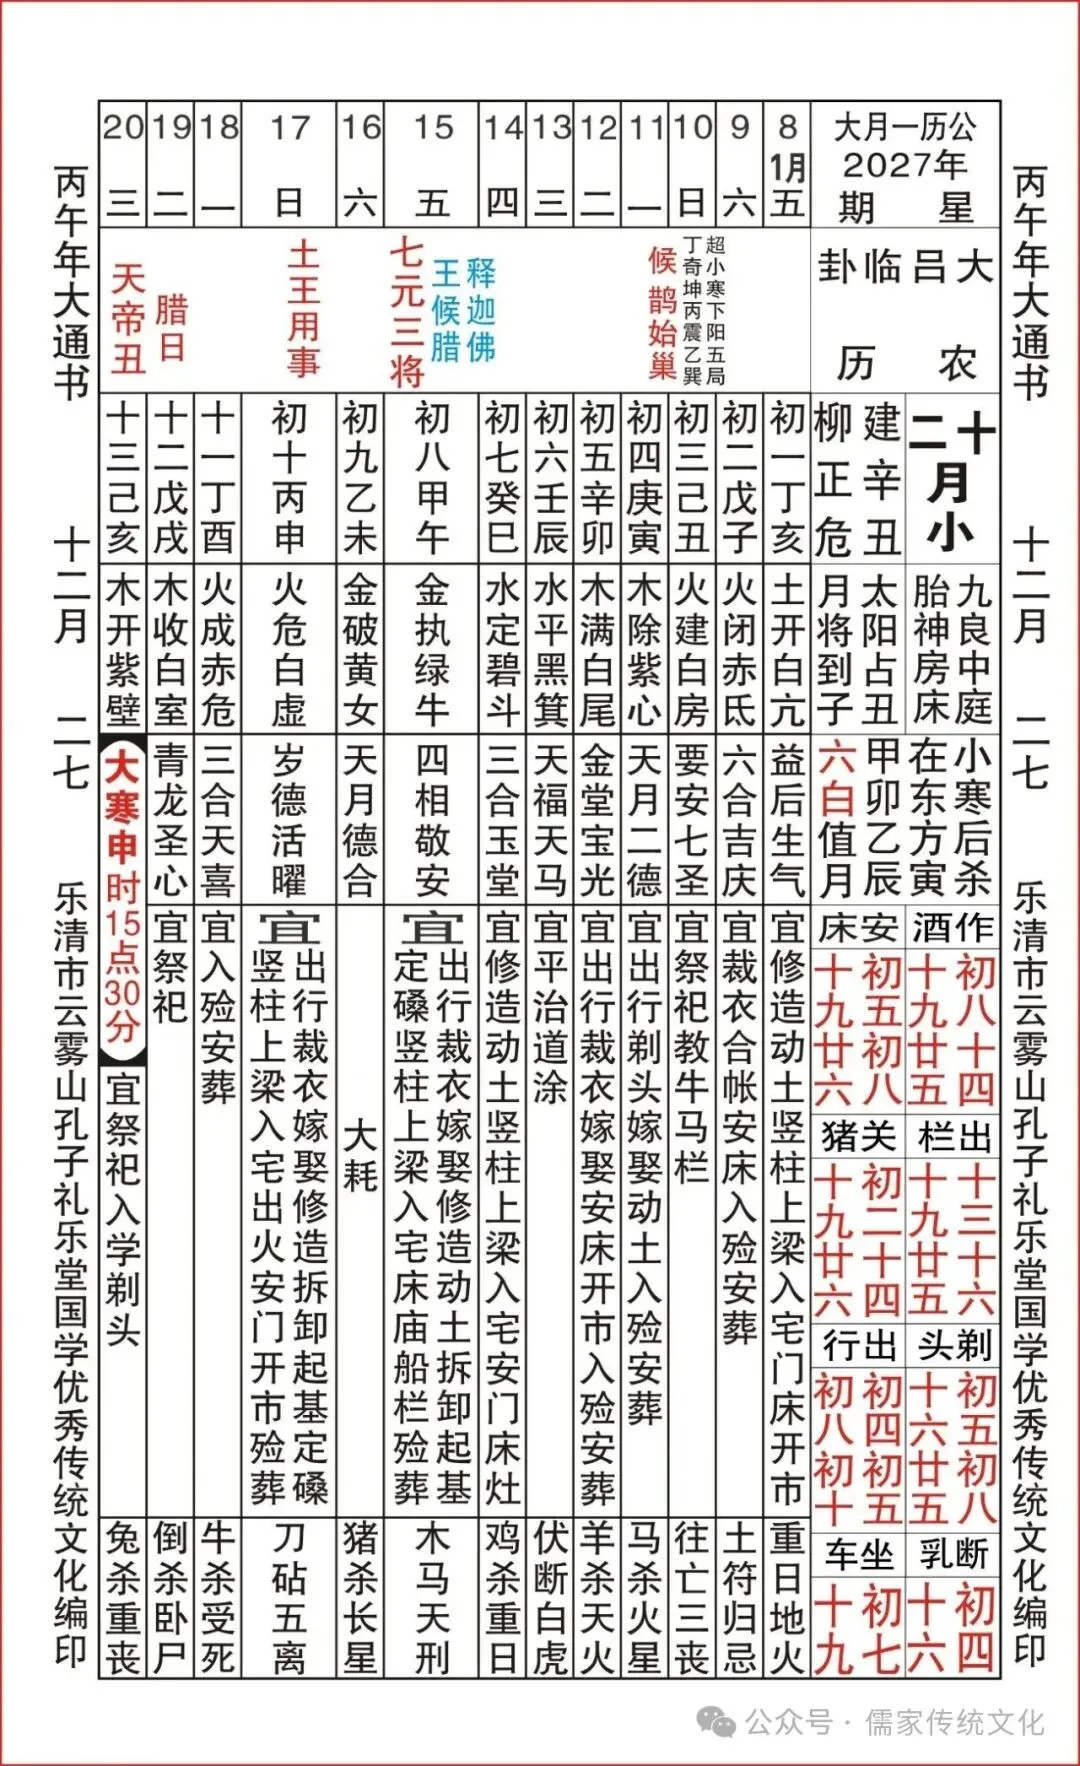 丙午年大通书 十二月 二七 乐清市云雾山孔子礼乐堂国学优秀传统文化编印
公历一月大
2027年
星期
大吕临卦
农历
十二月小
建辛丑
柳正危
九良中庭
胎神房床
太阳占丑
月将到子
小寒后杀
在东方寅
甲卯乙辰
六白值月
作酒
初八十四
十九廿五
安床
初五初八
十九廿六
出栏
十三十六
十九廿五
关猪
初二十四
十九廿六
剃头
初五初八
十六廿五
出行
初四初五
初八初十
断乳
初四
十六
坐车
初七
十九
8
1月
五
初一丁亥
土开白亢
益后生气
宜修造动土竖柱上梁入宅门床开市
重日地火
9
六
超小寒下阳五局
丁奇坤丙震乙巽
初二戊子
火闭赤氐
六合吉庆
宜裁衣合帐安床入殓安葬
土符归忌
10
日
初三己丑
火建白房
要安七圣
宜祭祀教牛马栏
往亡三丧
11
一
候鹊始巢
初四庚寅
木除紫心
天月二德
宜出行剃头嫁娶动土入殓安葬
马杀火星
12
二
初五辛卯
木满白尾
金堂宝光
宜出行裁衣嫁娶安床开市入殓安葬
羊杀天火
13
三
初六壬辰
水平黑箕
天福天马
宜平治道涂
伏断白虎
14
四
初七癸巳
水定碧斗
三合玉堂
宜修造动土竖柱上梁入宅安门床灶
鸡杀重日
15
五
释迦佛
王候腊
七元三将
初八甲午
金执绿牛
四相敬安
宜
出行裁衣嫁娶修造动土拆卸起基
定磉竖柱上梁入宅床庙船栏殓葬
木马天刑
16
六
初九乙未
金破黄女
天月德合
大耗
猪杀长星
17
日
土王用事
初十丙申
火危白虚
岁德活曜
宜
出行裁衣嫁娶修造拆卸起基定磉
竖柱上梁入宅出火安门开市殓葬
刀砧五离
18
一
十一丁酉
火成赤危
三合天喜
宜入殓安葬
牛杀受死
19
二
腊日
十二戊戌
木收白室
青龙圣心
宜祭祀
倒杀卧尸
20
三
天帝丑
十三己亥
木开紫壁
大寒申时15点30分
宜祭祀入学剃头
兔杀重丧
丙午年大通书 十二月 二七 乐清市云雾山孔子礼乐堂国学优秀传统文化编印
公众号·儒家传统文化